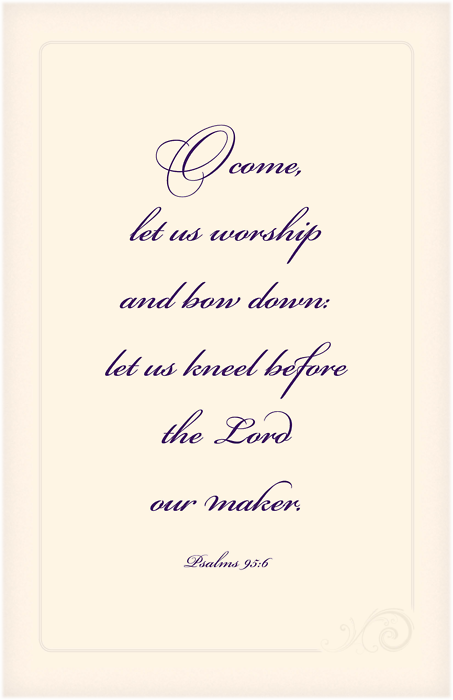 O come,
let us worship
and bow down:
let us kneel before
the Lord
our maker.
Psalms 95:6